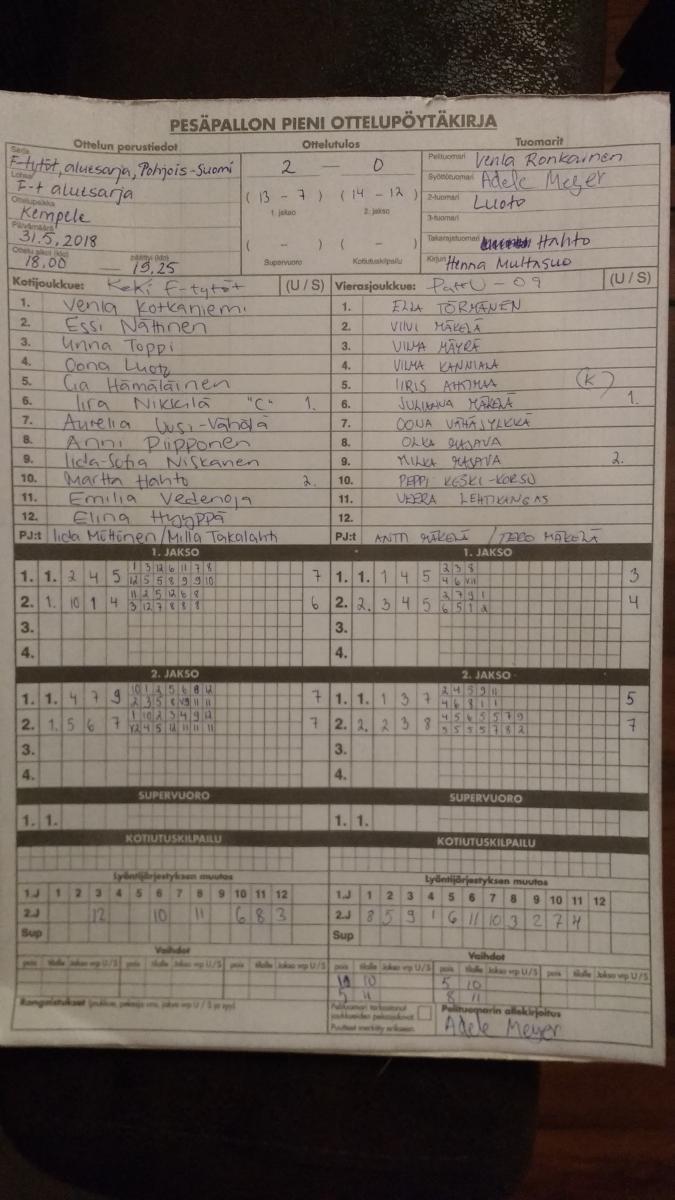 PESÄPALLON PIENI OTTELUPÖYTÄKIRJA
Ottelun perustiedot
Ottelutulos
Tuomarit
Sarja F-tytöt, aluesarja, Pohjois-Suomi
Lohko F-t aluesarja
Ottelupaikka Kempele
Päivämäärä 31.5.2018
Ottelu alkoi (klo) 18.00 — päättyi (klo) 19.25
2 — 0
( 13 - 7 ) ( 14 - 12 )
1. jakso 2. jakso
( - ) ( - )
Supervuoro Kotiutuskilpailu
Pelituomari Venla Ronkainen
Syöttötuomari Adele Meyer
2-tuomari Luoto
3-tuomari
Takarajatuomari Hahto
Kirjuri Henna Multasuo
Kotijoukkue: Keki F-tytöt (U / S)
1. Venla Kotkaniemi
2. Essi Nättinen
3. Unna Toppi
4. Oona Luoto
5. Cia Hämäläinen
6. Iira Nikkilä "C" 1.
7. Aurelia Uusi-Vähälä
8. Anni Piipponen
9. Iida-Sofia Niskanen
10. Martta Hahto 2.
11. Emilia Vedenoja
12. Elina Hyyppä
PJ:t Iida Möttönen/Milla Takalahti
Vierasjoukkue: PattU - 09 (U / S)
1. ELLA TÖRMÄNEN
2. VIIVI MÄKELÄ
3. VILMA MÄYRÄ
4. VILMA KANNIALA
5. IIRIS AHTIMAA (K)
6. JULIANNA MÄKELÄ 1.
7. OONA VÄHÄSYLKKÄ
8. RAJAVA
9. MILKA RAJAVA 2.
10. PEPPI KESKI-KORSU
11. VEERA LEHTIKANGAS
12.
PJ:t ANTTI MÄKELÄ / TERO MÄKELÄ
1. JAKSO
1. 1. 2 4 5 1 3 12 6 11 7 8 7
12 5 5 8 9 9 10
2. 1. 10 1 4 11 2 5 12 6 8 6
3 12 7 8 8 8
3.
4.
1. JAKSO
1. 1. 1 4 5 2 3 8 3
4 6
2. 2. 3 4 5 3 7 9 1 4
6 5 1 2
3.
4.
2. JAKSO
1. 1. 4 7 9 10 1 2 5 6 8 12 7
2 3 5 8 11 11
2. 1. 5 6 7 1 10 2 3 4 9 12 7
12 4 5 12 11 11 11
3.
4.
2. JAKSO
1. 1. 1 3 7 2 4 5 9 11 5
4 6 8 1 1
2. 2. 2 3 8 4 5 6 5 5 7 9 7
5 5 5 5 7 8 2
3.
4.
SUPERVUORO
1. 1.
SUPERVUORO
1. 1.
KOTIUTUSKILPAILU
KOTIUTUSKILPAILU
Lyöntijärjestyksen muutos
1.J 1 2 3 4 5 6 7 8 9 10 11 12
2.J 12 10 11 6 8 3
Sup
Lyöntijärjestyksen muutos
1.J 1 2 3 4 5 6 7 8 9 10 11 12
2.J 8 5 9 1 6 11 10 3 2 7 4
Sup
Vaihdot
pois tilalle Jakso vrp U/S pois tilalle Jakso vrp U/S pois tilalle Jakso vrp U/S
Vaihdot
pois tilalle Jakso vrp U/S pois tilalle Jakso vrp U/S pois tilalle Jakso vrp U/S
10 5 10
5 11 8 11
Rangaistukset (joukkue, pelaaja nro, jakso vrp U / S ja syy)
Pelituomari tarkastanut joukkueiden pelaajakortit
Puutteet merkitty erikseen
Pelituomarin allekirjoitus
Adele Meyer